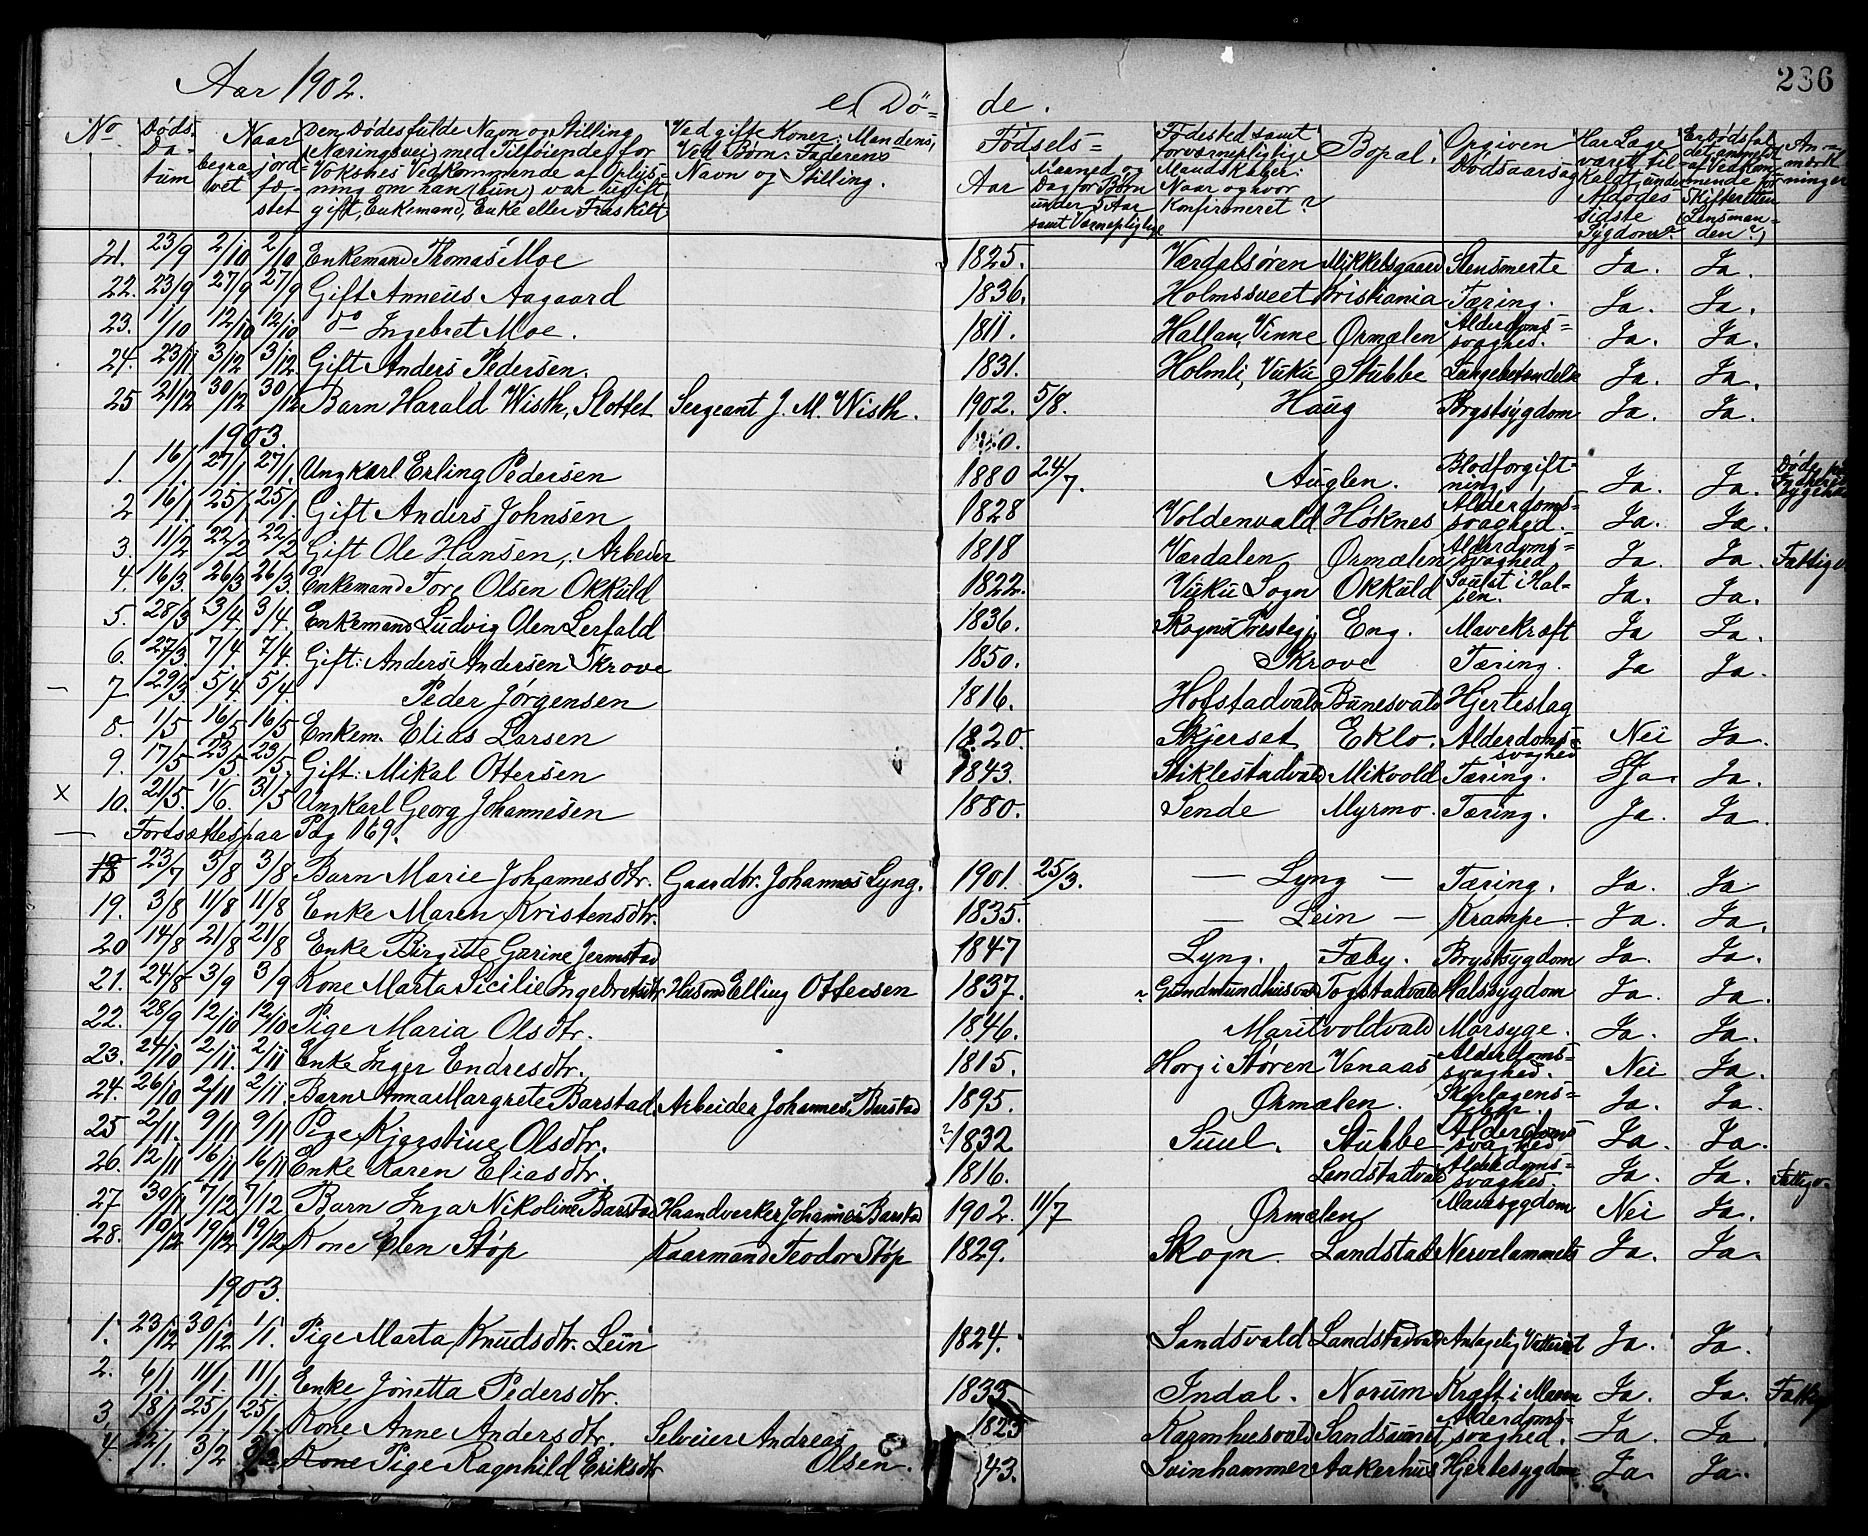 Aar 1902. e. Dö= de. 236
No Døds Da- tum | Naar begra- vet | jord- fæ- stet | Den Dødes fulde Navn og Stilling (Næringsvei) med Tilføiende for Voksnes Vedkommende af Oplys- ning om han (hun) var ugift gift, Enkemand, Enke eller Fraskilt | Ved gifte Koner: Mandens, Ved Børn: Faderens Navn og Stilling. | Fødsels= Aar | Maaned og Dag for Børn under 5 Aar samt Værnepligtige | Fødested samt for værnepligtige Mandskaber: Naar og hvor Konfirmeret? | Bopæl. | Opgiven Dødsaarsag | Har Læge været til- kaldt under Afdødes sidste Sygdom? | Er Dødsfal- det anmeldt af Vedkom- mende for Skifteretten (Lensman- den?) | An- mærk- ninger
21. 23/9 2/10 2/10 Enkemand Thomas Moe 1825. Værdalsøren Mikkelsgaard Stensmerte Ja. Ja.
22. 23/9 27/9 27/9 Gift Anneus Aagaard 1836. Holmsveet Kristiania Tæring. Ja. Ja.
23. 1/10 12/10 12/10 do Ingebret Moe. 1811. Hallan, Vinne Ørmælen Alderdoms= svaghed. Ja. Ja.
24. 23/11 3/12 3/12. Gift Anders Pedersen. 1831. Holmli, Vuku Stubbe Lungebetændelse Ja. Ja.
25 21/12 30/12 30/12 Barn Harald Wisth, Slottet Sergeant J. M. Wisth. 1902. 5/8. Haug Brystsygdom Ja. Ja.
1903.
1. 16/1 27/1 27/1. Ungkarl Erling Pedersen 1880 24/7. Auglen. Blodforgift- ning Ja. Ja. Døde paa
2 16/1 25/1 25/1. Gift Anders Johnsen 1828 Voldenvald Høknes Alderdoms- svaghed. Ja. Ja.
3. 11/2 22/2 22/2 Gift Ole Hansen, Arbeider 1818 Værdalen Ørmælen Alderdoms= svaghed Ja. Ja. Fattigv.
4. 16/3 26/3 26/3. Enkemand Tore Olsen Okkuld 1822. Vuku Sogn Okkuld Saulst i Hal- sen. Ja. Ja.
5. 28/3 3/4. 3/4. Enkemand Ludvig Olsen Lerfald 1836. Skogns Prestegj. Eng. Mavekræft Ja Ja.
6. 27/3. 7/4 7/4. Gift: Anders Andersen Skrove 1850. Skrove Tæring. Ja Ja.
— 7 29/3 5/4. 5/4. Peder Jørgensen 1816. Hofstadvald Bunesvald Hjerteslag
8. 1/5 16/5 16/5 Enkem. Elias Larsen 1820. Skjerset Eklo. Alderdoms= svaghed Nei Ja.
9. 17/5 23/5. 23/5 Gift: Mikal Ottersen 1843. Stiklestadvald Mikvold Tæring. Ja. Ja.
x 10. 21/5. 1/6. 31/5 Ungkarl Georg Johannesen 1880. Sende Myrmo. Tæring. Ja. Ja.
— Fortsættes paa Pag 169.
18 23/7 3/8 3/8 Barn Marie Johannesdtr. Gaardbr. Johannes Lyng. 1901. 25/3. — Lyng — Tæring. Ja. Ja
19. 3/8 11/8 11/8 Enke Maren Kristensdtr. 1835. — Lein — Krampe. Ja. Ja.
20 14/8 21/8 21/8 Enke Birgitte Garine Jermstad 1847 Lyng. Fæby. Brystsygdom Ja. Ja.
21. 24/8 3/9 3/9 Kone Marta Sicilie Ingebretsdtr. Husmd Elling Ottersen 1837. Gudmundhusvald Togstadvald Halssygdom Ja. Ja.
22. 28/9 12/10 12/10 Pige Maria Olsdtr. 1846. Maritvoldvald Morsyge. Ja. Ja.
23. 24/10 2/11. 2/11 Enke Inger Endresdtr. 1815. Horg i Støren Venaas Alderdoms= svaghed. Nei Ja.
24. 26/10 2/11 2/11. Barn Anna Margrete Barstad. Arbeider Johannes Barstad 1895. Ørmælen. Skarlagens= feber. Ja. Ja.
25 2/11. 9/11 9/11 Pige Kjerstine Olsdtr. ?1832 Suul. Stubbe Alderdoms svaghed Ja. Ja.
26. 12/11 16/11 16/11 Enke Karen Eliasdtr. 1816. Landstadvald Alderdoms= svaghed. Ja. Ja. Fattigv.
27 30/11 7/12 7/12 Barn Inga Nikoline Barstad Haandverker Johannes Barstad 1902. 11/7 Ørmælen Mavesygdom Nei Ja.
28. 10/12 19/12 19/12 Kone Elen Støp Kaarmand Teodor Støp 1829. Skogn. Landstad Nervelammelse Ja. Ja.
1903.
1. 23/12 30/12 1/1. Pige Marta Knudsdtr. Lein 1824. Sandsvald Landstadvald Ja. Ja.
2. 6/1. 11/1. 11/1. Enke Jonetta Pedersdtr. 1833 Indal. Norum Kræft i Maven Ja. Ja. Fattigv
3. 18/1 25/1 25/1. Kone Anne Andersdtr. Selveier Andreas Olsen. 1823 Karmhusvald Sandsaunet Alderdoms= svaghed. Ja. Ja.
4. 22/1. 3/2 3/2 Kone Pige Ragnhild Eriksdtr 43. Svinhammer Aakerhus Hjertesygdom Ja. Ja.